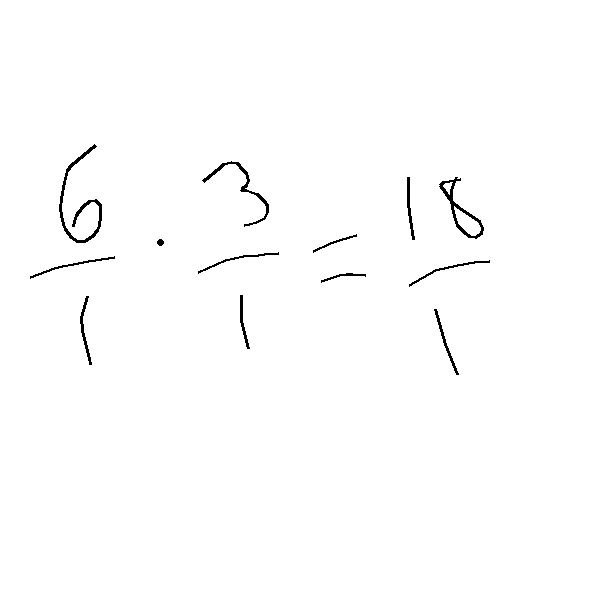 6/1 · 3/1 = 18/1